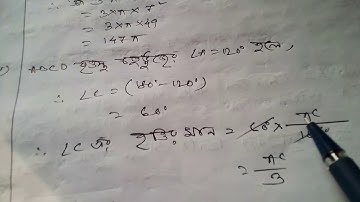 ∴ = 3×π×7²
= 3×π×49
= 147π
ABCD বৃত্তস্থ চতুর্ভুজে ∠A=120° হলে,
∴ ∠C = (180°-120°)
= 60°
∴ ∠C এর মান = 60 × πᶜ/
= πᶜ/3